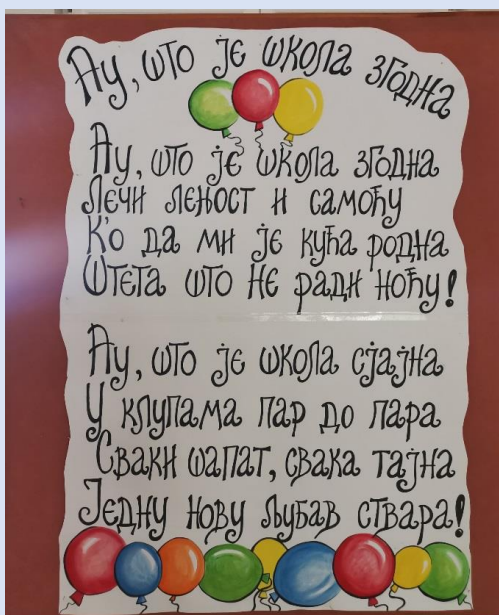 Ау, што је школа згодна
Ау, што је школа згодна
Лечи леност и самоћу
К'о да ми је кућа родна
Штета што не ради ноћу!
Ау, што је школа сјајна
У клупама пар до пара
Сваки шапат, свака тајна
Једну нову љубав ствара!